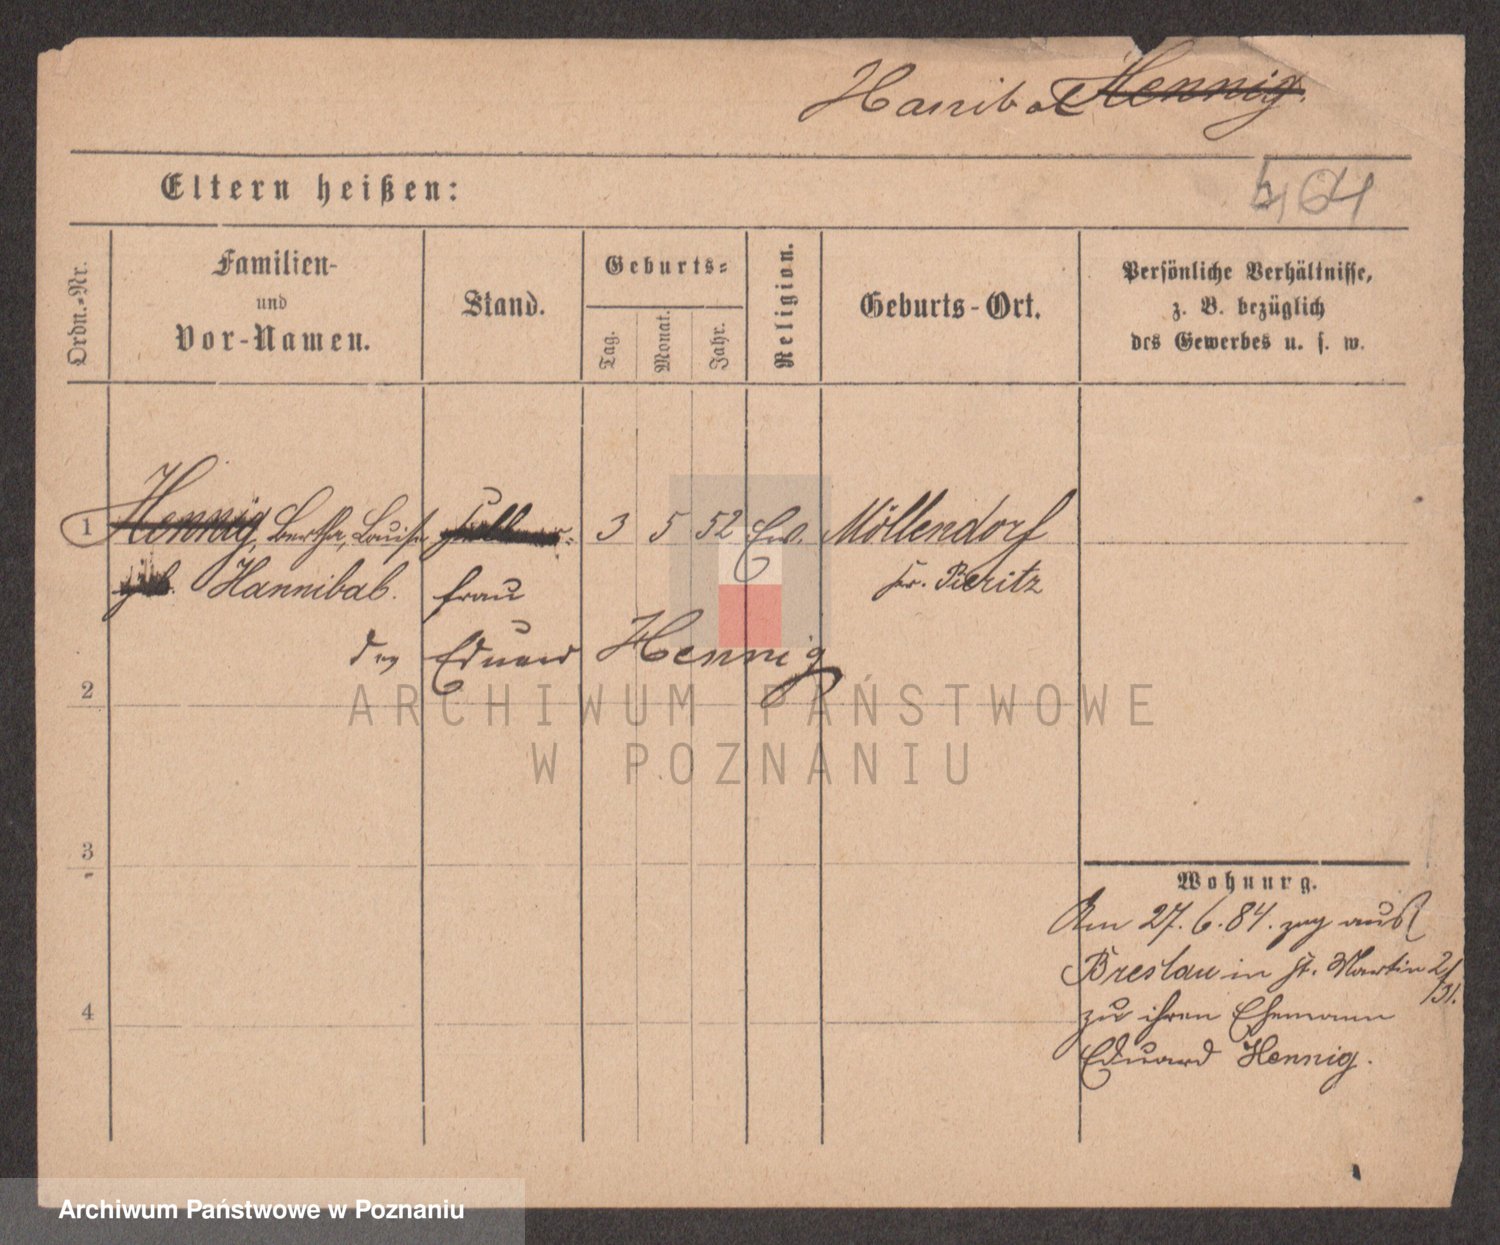 Hannibal Hennig.
Eltern heißen:
464
Ordn.-Nr.
Familien-
und
Vor-Namen.
Stand.
Geburts-
Tag.
Monat.
Jahr.
Religion.
Geburts-Ort.
Persönliche Verhältnisse,
z. B. bezüglich
des Gewerbes u. s. w.
1 Hennig, Bertha, Louise 3 5 52 Ev. Möllendorf
geb. Hannibal. frau Kr. Pieritz
des Eduard Hennig
2
3
4
Wohnung.
Am 27. 6. 84. zog aus
Breslau in St. Martin 2/31.
zu ihren Ehemann
Eduard Hennig.
ARCHIWUM PAŃSTWOWE
W POZNANIU
Archiwum Państwowe w Poznaniu